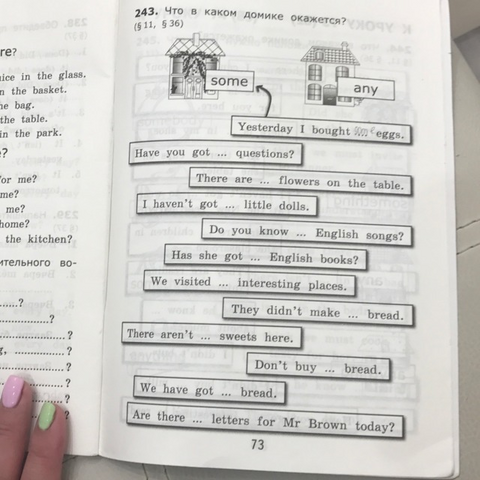 re?
ice in the glass.
n the basket.
he bag.
the table.
in the park.
e?
for me?
me?
me?
home?
the kitchen?
ительного во-
......?
............?
............?
g, ............?
............?
............?
?
243. Что в каком домике окажется?
(§ 11, § 36)
some
any
Yesterday I bought some eggs.
Have you got ... questions?
There are ... flowers on the table.
I haven't got ... little dolls.
Do you know ... English songs?
Has she got ... English books?
We visited ... interesting places.
They didn't make ... bread.
There aren't ... sweets here.
Don't buy ... bread.
We have got ... bread.
Are there ... letters for Mr Brown today?
73